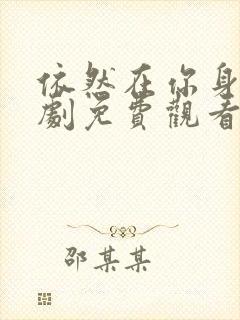 依然在你身
劇免費觀看
邵某某